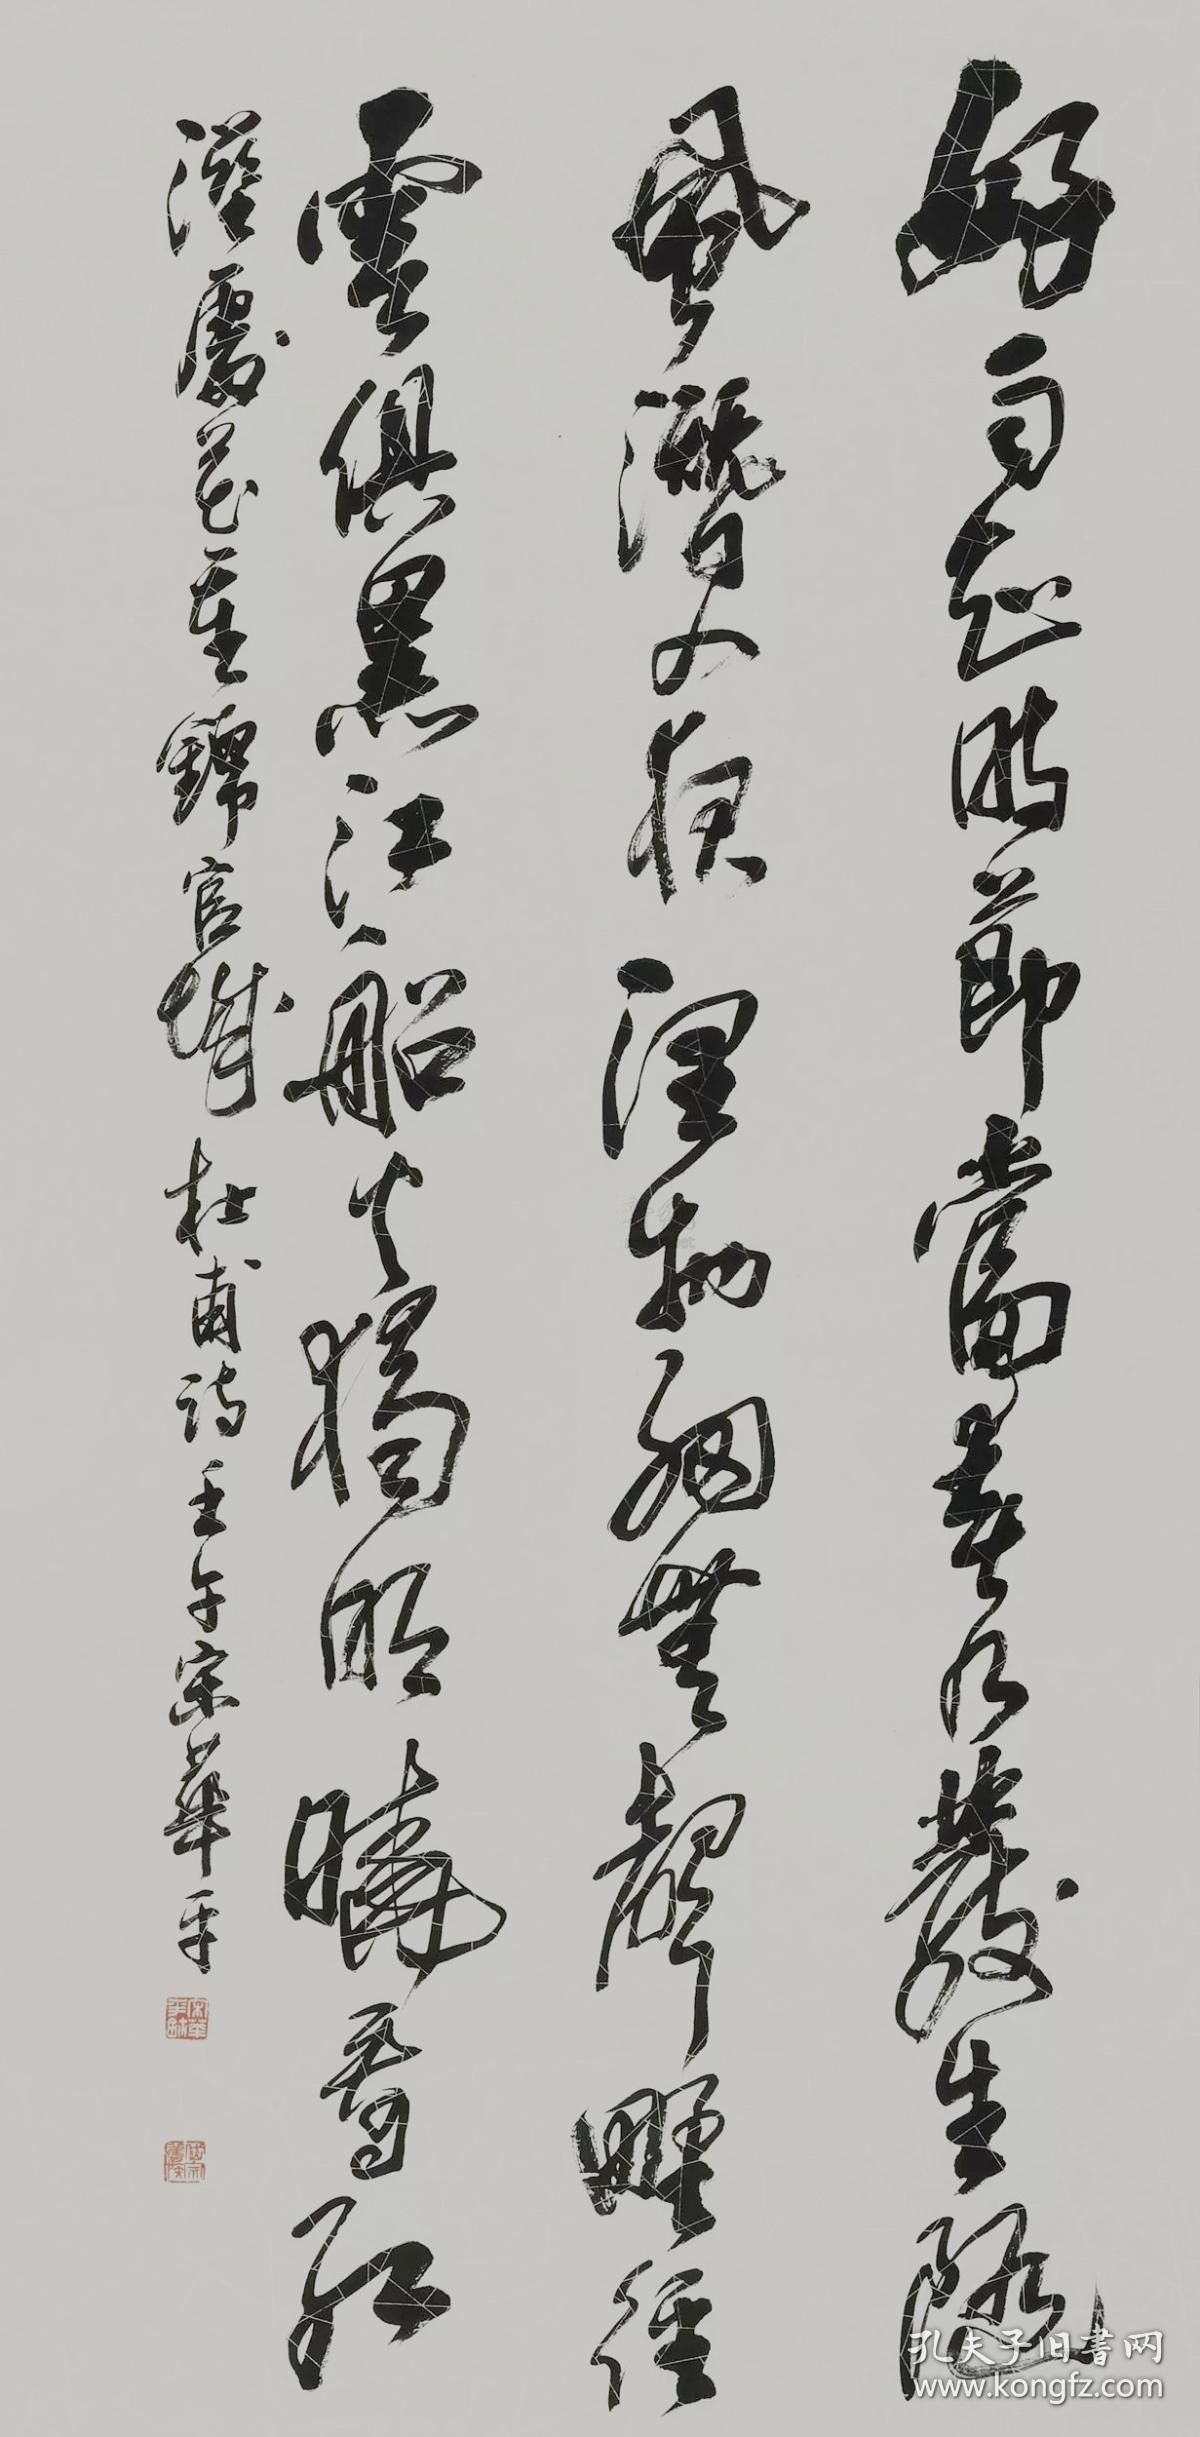 好雨知時節當春乃發生隨
風潛入夜潤物細無聲野徑
雲俱黑江船火獨明曉看紅
濕處花重錦官城 杜甫詩 壬午宋華平
孔夫子旧書网
www.kongfz.com